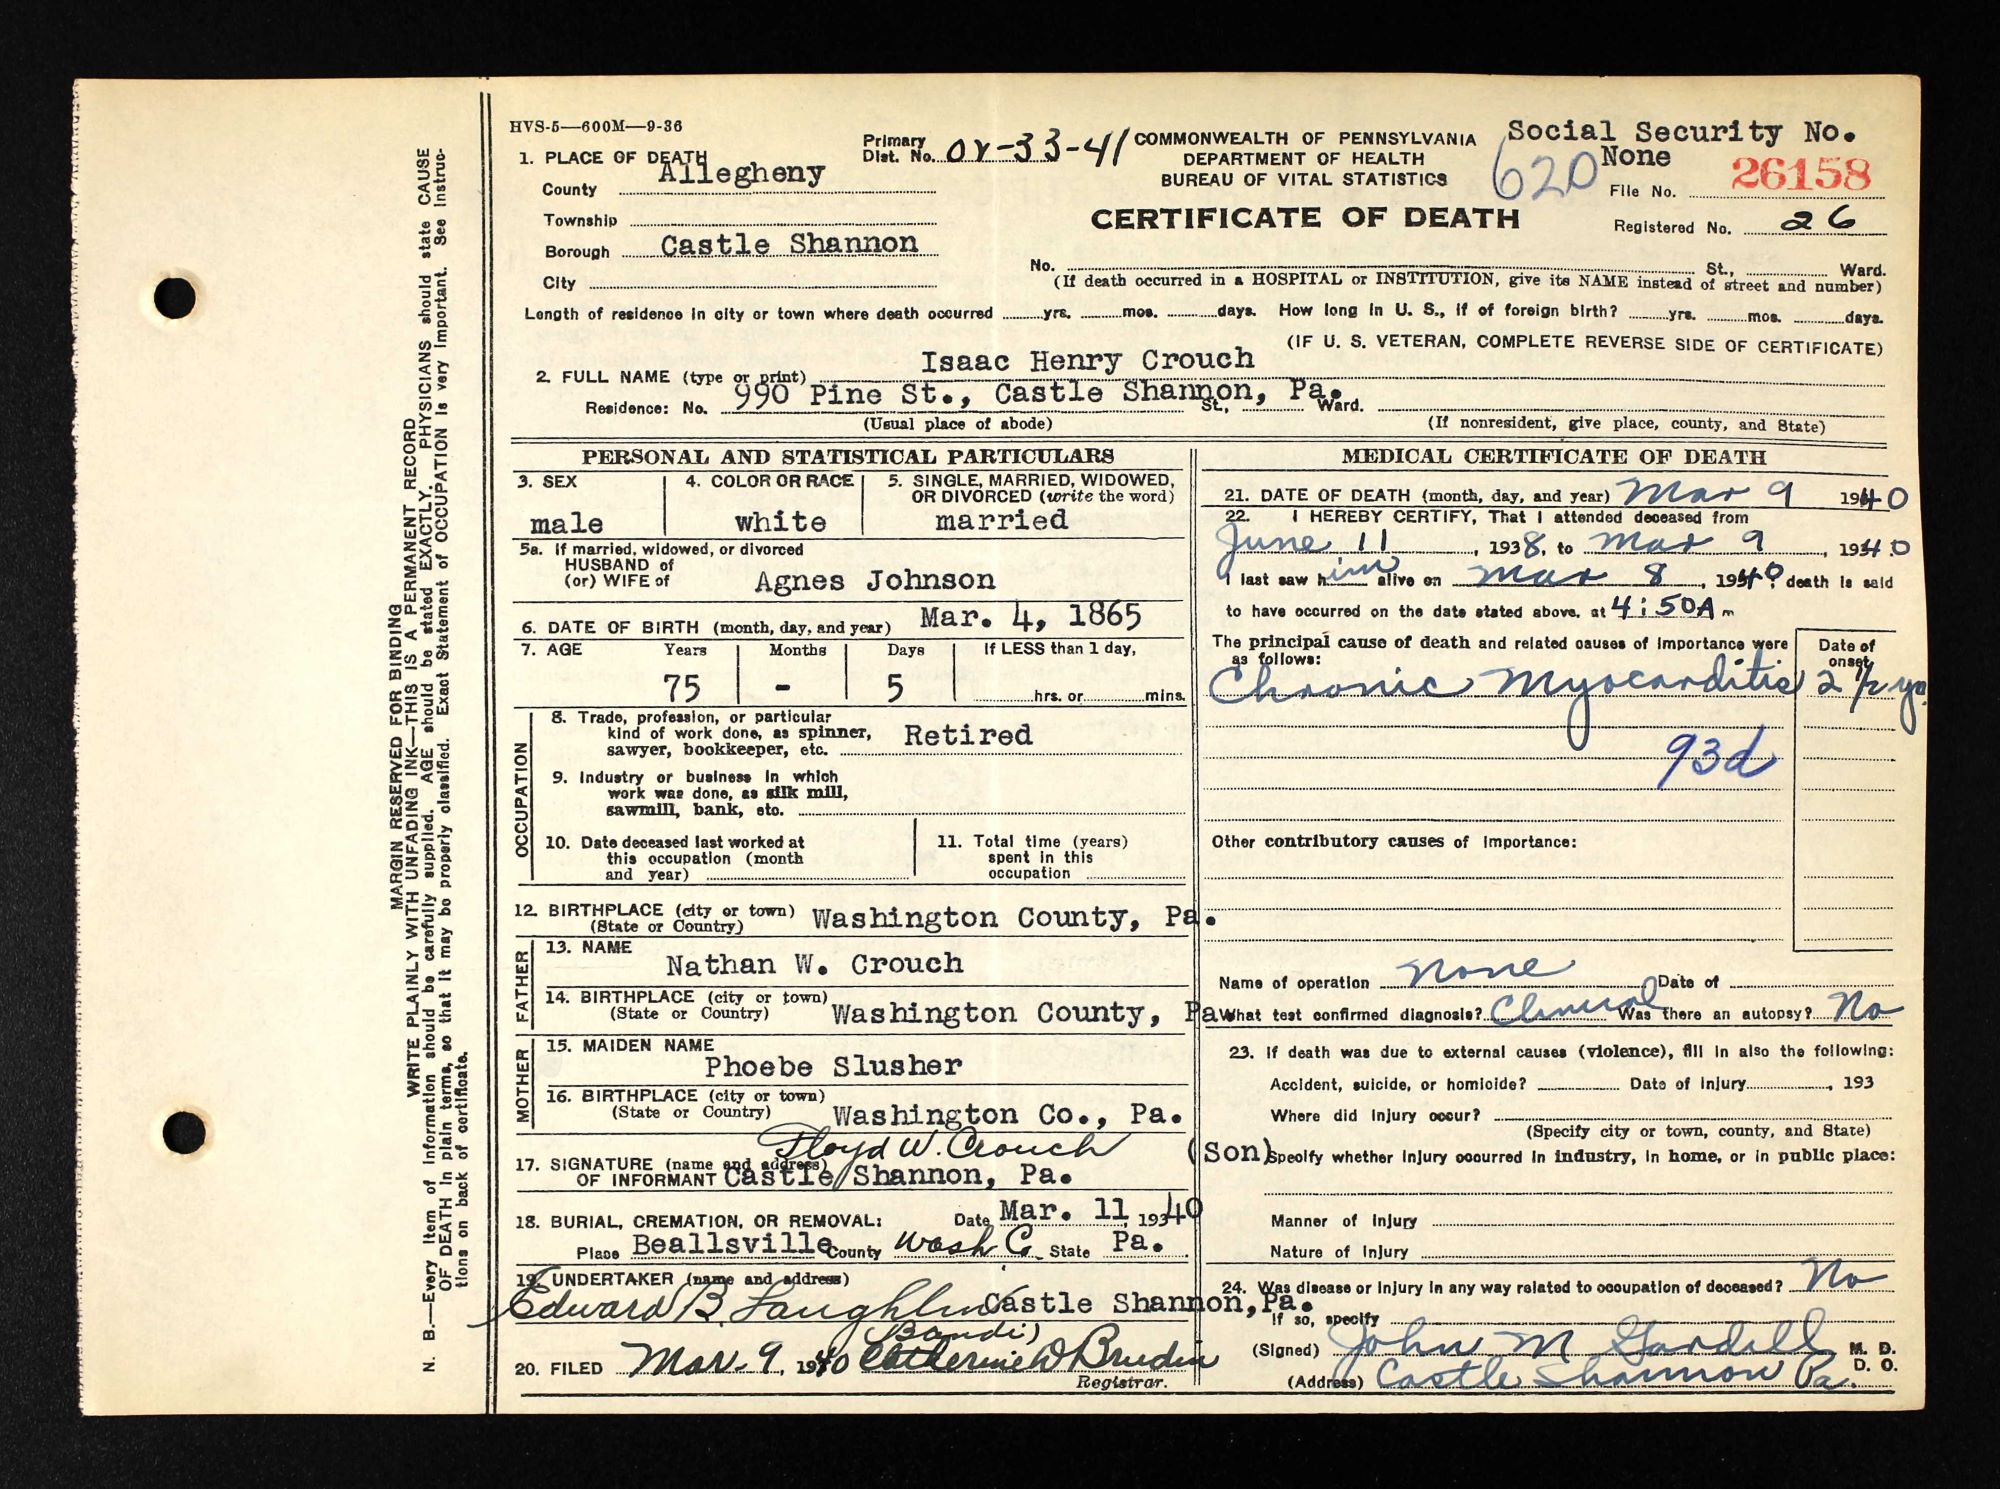 HVS-5—600M—9-36
1. PLACE OF DEATH
County Allegheny
Township
Borough Castle Shannon
City
Primary Dist. No. 02-33-41
COMMONWEALTH OF PENNSYLVANIA
DEPARTMENT OF HEALTH
BUREAU OF VITAL STATISTICS
CERTIFICATE OF DEATH
Social Security No.
None
620
File No. 26158
Registered No. 26
No. St., Ward.
(If death occurred in a HOSPITAL or INSTITUTION, give its NAME instead of street and number)
Length of residence in city or town where death occurred yrs. mos. days. How long in U. S., if of foreign birth? yrs. mos. days.
(IF U. S. VETERAN, COMPLETE REVERSE SIDE OF CERTIFICATE)
2. FULL NAME (type or print) Isaac Henry Crouch
Residence: No. 990 Pine St., Castle Shannon, Pa. St., Ward.
(Usual place of abode) (If nonresident, give place, county, and State)
PERSONAL AND STATISTICAL PARTICULARS
3. SEX
male
4. COLOR OR RACE
white
5. SINGLE, MARRIED, WIDOWED,
OR DIVORCED (write the word)
married
5a. If married, widowed, or divorced
HUSBAND of
(or) WIFE of Agnes Johnson
6. DATE OF BIRTH (month, day, and year) Mar. 4, 1865
7. AGE Years Months Days If LESS than 1 day,
75 - 5 hrs. or mins.
OCCUPATION
8. Trade, profession, or particular
kind of work done, as spinner,
sawyer, bookkeeper, etc. Retired
9. Industry or business in which
work was done, as silk mill,
sawmill, bank, etc.
10. Date deceased last worked at
this occupation (month
and year)
11. Total time (years)
spent in this
occupation
12. BIRTHPLACE (city or town) Washington County, Pa.
(State or Country)
FATHER
13. NAME
Nathan W. Crouch
14. BIRTHPLACE (city or town)
(State or Country) Washington County, Pa.
MOTHER
15. MAIDEN NAME
Phoebe Slusher
16. BIRTHPLACE (city or town)
(State or Country) Washington Co., Pa.
Floyd W. Crouch (Son)
17. SIGNATURE (name and address)
OF INFORMANT Castle Shannon, Pa.
18. BURIAL, CREMATION, OR REMOVAL: Date Mar. 11, 1940
Place Beallsville County Wash Co. State Pa.
19. UNDERTAKER (name and address)
Edward B. Laughlin Castle Shannon, Pa.
20. FILED Mar. 9, 1940 Catherine D
Registrar.
MEDICAL CERTIFICATE OF DEATH
21. DATE OF DEATH (month, day, and year) Mar 9 1940
22. I HEREBY CERTIFY, That I attended deceased from
June 11, 1938, to Mar 9, 1940
I last saw him alive on Mar 8, 1940, death is said
to have occurred on the date stated above, at 4:50 A m
The principal cause of death and related causes of importance were
as follows:
Date of
onset
Chronic Myocarditis 2 1/2 ys
93d
Other contributory causes of importance:
Name of operation None Date of
What test confirmed diagnosis? Clinical Was there an autopsy? No
23. If death was due to external causes (violence), fill in also the following:
Accident, suicide, or homicide? Date of injury , 193
Where did injury occur?
(Specify city or town, county, and State)
Specify whether injury occurred in industry, in home, or in public place:
Manner of injury
Nature of injury
24. Was disease or injury in any way related to occupation of deceased? No
If so, specify
(Signed) John M M. D.
D. O.
(Address) Castle Shannon Pa.
MARGIN RESERVED FOR BINDING
WRITE PLAINLY WITH UNFADING INK—THIS IS A PERMANENT RECORD
N. B.—Every item of information should be carefully supplied. AGE should be stated EXACTLY. PHYSICIANS should state CAUSE
OF DEATH in plain terms, so that it may be properly classified. Exact Statement of OCCUPATION is very important. See Instruc-
tions on back of certificate.